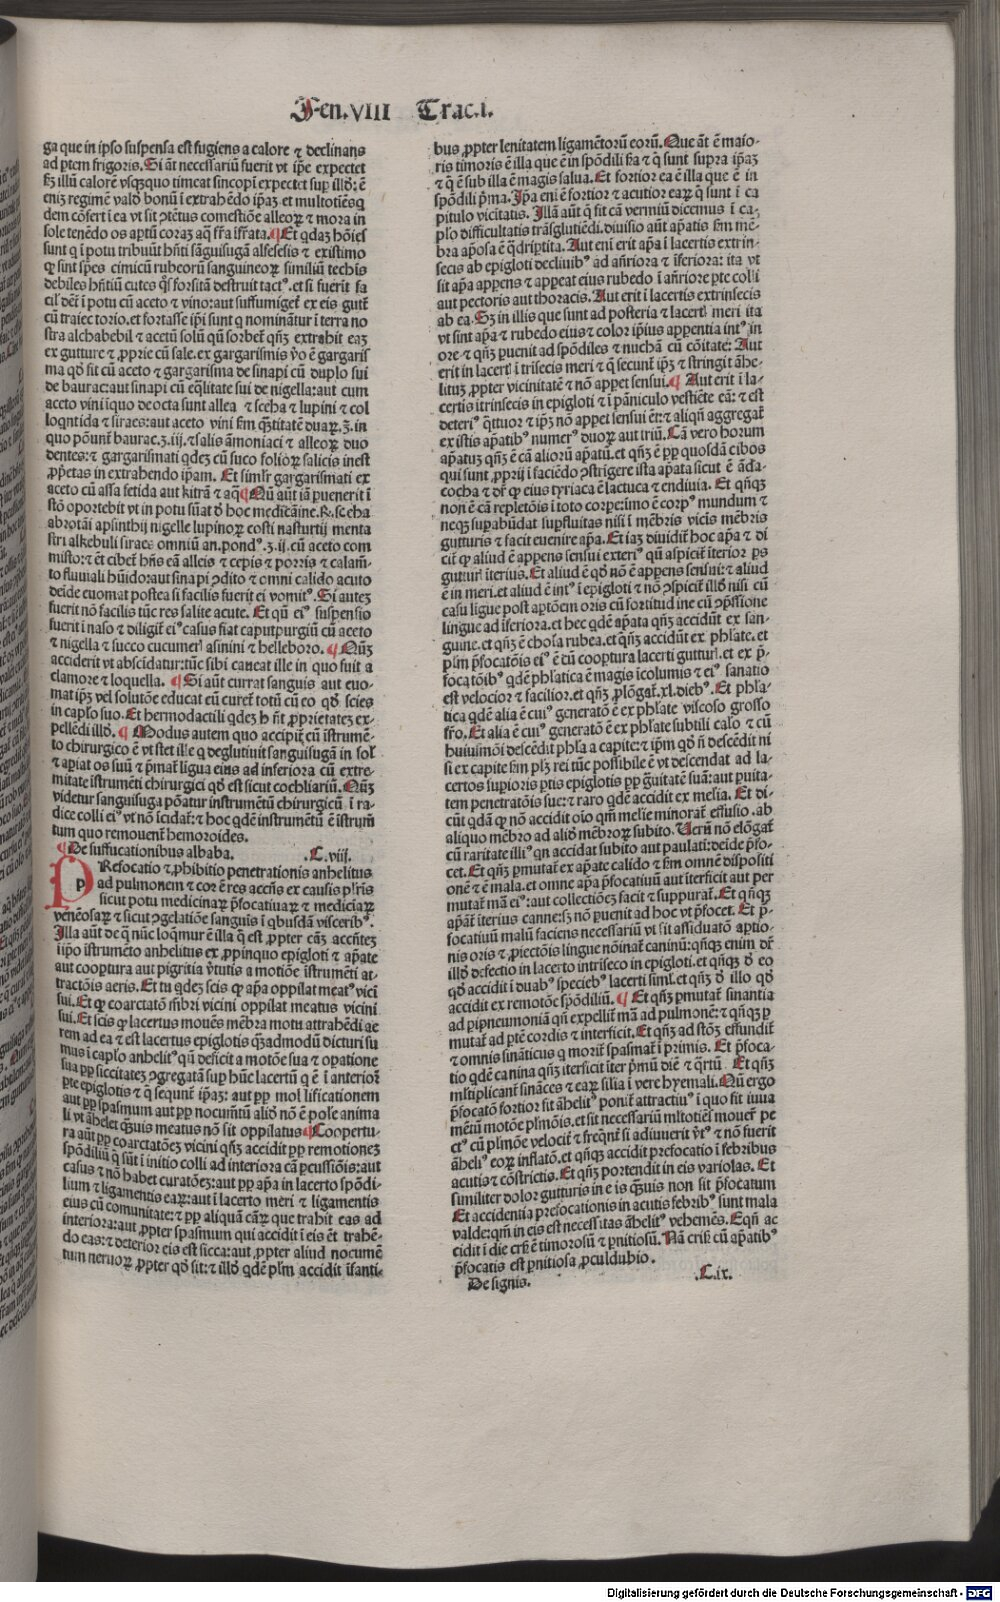 Fen.VIII Trac.I.
ga que in ipso suspensa est fugiens a calore ⁊ declinans
ad ptem frigoris. Si āt necessariū fuerit vt ip̄e expectet
dem cōfert i ea vt sit ɔtētus comestiōe alleoꝝ ⁊ mora in
sunt q i potu tribuūt hn̄ti sāguisugā alfesesis ⁊ existimo
ꝙ sunt sp̄es cimicū rubeorū sanguineoꝝ similiū techis
cil' det̄ i potu cū aceto ⁊ vino: aut suffumiget̄ ex eis gutt̄
stra alchabebil ⁊ acetū solū qū sorbet̄ qn̄ꝫ extrahit eaꝫ
ex gutture ⁊ ꝓprie cū sale. ex gargarismis v̄o ē gargaris
ma qd̄ fit cū aceto ⁊ gargarisma de sinapi cū duplo sui
de baurac: aut sinapi cū eq̄litate sui de nigella: aut cum
aceto vini iquo decocta sunt allea ⁊ sceha ⁊ lupini ⁊ col
loqntida ⁊ siracs: aut aceto vini fm q̄ntitatē duaꝝ.ʒ. in
quo pōunt̄ baurac.ʒ.iij. ⁊ salis āmoniaci ⁊ alleoꝝ duo
dentes: ⁊ gargarismati qdeꝫ cū suco folioꝝ salicis inest
ꝓp̄etas in extrahendo ip̄am. Et simlr̄ gargarismati ex
aceto cū assa fetida aut kitrā ⁊ aq̄ ¶Qū aūt iā puenerit i
stō oportebit vt in potu sūat̄ d̄ hoc medicāine.℞. sceha
abrotāi apsinthij nigelle lupinoꝝ costi nasturtij menta
stri alkebuli siracs omniū an. pond'.ʒ.ij. cū aceto com
misto: ⁊ ēt cibet̄ hn̄s eā alleis ⁊ cepis ⁊ porris ⁊ calam̄
to fluuiali hūido: aut sinapi ɔdito ⁊ omni calido acuto
deide euomat postea si facilis fuerit ei vomit'. Si auteꝫ
fuerit nō facilis tūc res salite acute. Et qū ei' suspensio
fuerit i naso ⁊ diligit̄ ei' casus fiat caputpurgiū cū aceto
⁊ nigella ⁊ succo cucumer̄ asinini ⁊ helleboro. ¶Qn̄ꝫ
acciderit vt abscidatur: tūc sibi caueat ille in quo fuit a
clamore ⁊ loquella. ¶Si aūt currat sanguis aut euo-
mat ipꝫ vel solutōe educat eū curet̄ totū cū eo qd̄ scies
in capl̄o suo. Et hermodactili qdeꝫ hn̄t ꝓprietateꝫ ex-
pellēdi illd̄. ¶Modus autem quo accipit̄ cū istrumē-
to chirurgico ē vt stet ille q deglutiuit sanguisugā in sol'
⁊ apiat os suū ⁊ p̄mat̄ ligua eius ad inferiora cū extre-
mitate istrumēti chirurgici qd̄ est sicut cochliariū. Qn̄ꝫ
videtur sanguisuga pōatur instrumētū chirurgicū i ra-
dice colli ei' vt nō scidat̄: ⁊ hoc qdē instrumētū ē istrum̄
tum quo remouent̄ hemoroides.
¶De suffucationibus albaba. .C.viij.
PRefocatio ⁊ ꝓhibitio penetrationis anhelitus
ad pulmonem ⁊ cor ē res accn̄s ex causis pl'ris
sicut potu medicinaꝝ p̄focatiuaꝝ ⁊ medicinaꝝ
venēosaꝝ ⁊ sicut ɔgelatiōe sanguis i qbusdā viscerib'.
Illa aūt de q nūc loq̄mur ē illa q̄ est ꝓpter cāꝫ accn̄teꝫ
i ipo istrumēto anhelitus ex ꝓpinquo epigloti ⁊ ap̄ate
aut cooptura aut pigritia v̄tutis a motiōe istrumēti at-
tractōis aeris. Et tu qdeꝫ scis ꝙ ap̄a oppilat meat' vici
sui. Et ꝙ coarctatō m̄bri vicini oppilat meatus vicini
sui. Et scis ꝙ lacertus mouēs mēbra motu attrahēdi ae
rem ad ea ⁊ est lacertus epiglotis q̄ꝫadmodū dicturi su
mus i capl̄o anhelit' qū deficit a motōe sua ⁊ opatione
sua pp siccitateꝫ ɔgregatā sup hūc lacertū q ē i anteriori
pte epiglotis ⁊ q̄ sequnt̄ ip̄aꝫ: aut pp mollificationem
aut pp spasmum aut pp nocumētū aliō nō ē pole anima
li vt āhelet q̄uis meatus nō sit oppilatus ¶Coopertu-
ra aūt pp coarctatōeꝫ vicini qn̄ꝫ accidit pp remotioneꝫ
spōdiliū q̄ sūt i initio colli ad interiora cā pcussiōis: aut
casus ⁊ nō habet curatōeꝫ: aut pp ap̄a in lacerto spōdi-
lium ⁊ ligamentis eaꝝ: aut i lacerto meri ⁊ ligamentis
eius cū comunitate: ⁊ pp aliquā cāꝝ que trahit eas ad
interiora: aut ꝓpter spasmum qui accidit i eis ēt trahē-
do eas: ⁊ deterior eis est sicca: aut ꝓpter aliud nocumē
tum neruoꝝ ꝓpter qd̄ sit: ⁊ illd̄ qdē pl'm accidit īfanti-
bus ꝓpter lenitatem ligamētorū eorū. Que āt ē maio-
ris timoris ē illa que ē in spōdili p̄a ⁊ q̄ sunt supra ip̄aꝫ
⁊ q̄ ē sub illa ē magis salua. Et fortior ea ē illa que ē in
spōdili p̄ma. Ip̄a eni ē fortior ⁊ acutior eaꝝ q̄ sunt i ca
pitulo vicitatis. Illā aūt q̄ fit cā vermiū dicemus i ca-
pl̄o difficultatis trāsglutiēdi. diuisio aūt ap̄atis fm mē-
bra ap̄osa ē q̄dripita. Aut eni erit ap̄a i lacertis extrin-
secis ab epigloti decliuib' ad añriora ⁊ iferiora: ita vt
sit ap̄a appens ⁊ appeat eius rubedo i añriore pte colli
aut pectoris aut thoracis. Aut erit i lacertis extrinsecis
ab ea. Sꝫ in illis que sunt ad posteria ⁊ lacert̄ meri ita
vt sint ap̄a ⁊ rubedo eius ⁊ color ip̄ius appentia int' in
ore ⁊ qn̄ꝫ puenit ad spōdiles ⁊ nuchā cū cōitate: Aut
erit in lacert̄ i trisecis meri ⁊ q̄ secunt̄ ipꝫ ⁊ stringit āhe-
lituꝫ ꝓpter vicinitatē ⁊ nō appet sensui. ¶Aut erit i la-
certis itrinsecis in epigloti ⁊ i pāniculo vestiēte eā: ⁊ est
deteri' q̄ttuor ⁊ ipꝫ nō appet sensui ēt: ⁊ aliqn̄ aggregat̄
ex istis ap̄atib' numer' duoꝝ aut triū. Cā vero horum
ap̄atuꝫ qn̄ꝫ ē cā aliorū ap̄atū. et qn̄ꝫ ē pp quosdā cibos
qui sunt ꝓprij i faciēdo ɔstrigere ista ap̄ata sicut ē āda-
cocha ⁊ dr̄ ꝙ eius tyriaca ē lactuca ⁊ endiuia. Et qn̄qꝫ
non ē cā repletōis i toto corpe: imo ē corp' mundum ⁊
necqꝫ supabūdat supfluitas nisi i mēbris vicis mēbris
gutturis ⁊ facit euenire ap̄a. Et iaꝫ diuidit̄ hoc ap̄a ⁊ di
cit̄ ꝙ aliud ē appens sensui exteri' qū aspicit̄ iterior ps
guttur̄ iterius. Et aliud ē qd̄ nō ē appens sensui: ⁊ aliud
ē in meri. et aliud ē int' i epigloti ⁊ nō ɔspicit̄ illd̄ nisi cū
casu ligue post aptōem oris cū fortitudine cū ꝓp̄ssione
lingue ad iferiora. et hec qdē ap̄ata qn̄ꝫ accidūt ex san-
guine. et qn̄ꝫ ē chola rubea. et qn̄ꝫ accidūt ex phl̄ate. et
pl'm p̄focatōis ei' ē cū cooptura lacerti guttur̄. et ex p̄-
focatōib' qdē phl̄atica ē magis icolumis ⁊ ei' sanatio
est velocior ⁊ facilior. et qn̄ꝫ ꝓlōgat̄.xl.dieb'. Et phl̄a-
tica qdē alia ē cui' generatō ē ex phl̄ate viscoso grosso
fr̄o. Et alia ē cui' generatō ē ex phl̄ate subtili cal̄o ⁊ cū
huiusmōi descēdit phl̄a a capite: ⁊ ip̄m qd̄ n̄ descēdit ni
si ex capite fm plꝫ rei tūc possibile ē vt descendat ad la-
certos supioris ptis epiglotis pp grauitatē suā: aut puita-
tem penetratōis sue: ⁊ raro qdē accidit ex melia. Et di-
cūt qdā ꝙ nō accidit oīo qm̄ melie minorat̄ effusio. ab
aliquo mēbro ad aliō mēbroꝝ subito. Verū nō elōgat̄
cū raritate illi' qn accidat subito aut paulati: deide p̄fo-
cet. Et qn̄ꝫ pmutat̄ ex ap̄ate calido ⁊ fm omnē dispositi
onē ⁊ ē mala. et omne ap̄a p̄focatiuū aut iterficit aut per
mutat̄ mā ei': aut collectiōeꝫ facit ⁊ suppurat̄. Et qn̄qꝫ
ap̄at̄ iterius canne: sꝫ nō puenit ad hoc vt p̄focet. Et p̄-
focatiuū malū faciens necessariū vt sit assiduatō aptio-
nis oris ⁊ ꝓiectōis lingue nōinat̄ caninū: qn̄qꝫ enim dr̄
illd̄ defectio in lacerto intriseco in epigloti. et qn̄qꝫ d̄ eo
qd̄ accidit i duab' specieb' lacerti siml'. et qn̄ꝫ d̄ illo qd̄
accidit ex remotōe spōdiliū. ¶Et qn̄ꝫ pmutat̄ sinantia
ad pipneumoniā qn̄ expellit̄ mā ad pulmonē: ⁊ qn̄qꝫ p
mutat̄ ad ptē cordis ⁊ interficit. Et qn̄ꝫ ad stōꝫ effundit̄
⁊ omnis sināticus q morit̄ spasmat̄ i primis. Et p̄foca-
tio qdē canina qn̄ꝫ iterficit iter p̄mū diē ⁊ q̄rtū Et qn̄ꝫ
ml'tiplicant̄ sināces ⁊ eaꝝ silia i vere hyemali. Qū ergo
p̄focatō fortior fit āhelit' ponit̄ attractiu' i quo fit iuua
mētū motōe pl'mōis. et fit necessariū ml'totiēs mouer̄ pe
ct' cū pl'mōe velocit̄ ⁊ freq̄nt̄ si adiuuerit v̄t' ⁊ nō fuerit
āheli' eoꝝ inflatō. et qn̄qꝫ accidit prefocatio i febribus
acutis ⁊ cōstrictis. Et qn̄ꝫ portendit in eis variolas. Et
similiter dolor gutturis in eis q̄uis non sit p̄focatum
Et accidentia prefocationis in acutis febrib' sunt mala
valde: qm̄ in eis est necessitas āhelit' vehemēs. Eqn̄ ac
cidit i die crē ē timorosū ⁊ pnitiosū. Nā crē cū ap̄atib'
p̄focatis est pnitiosa ꝓculdubio.
De signis. .C.ix.
Digitalisierung gefördert durch die Deutsche Forschungsgemeinschaft - DFG